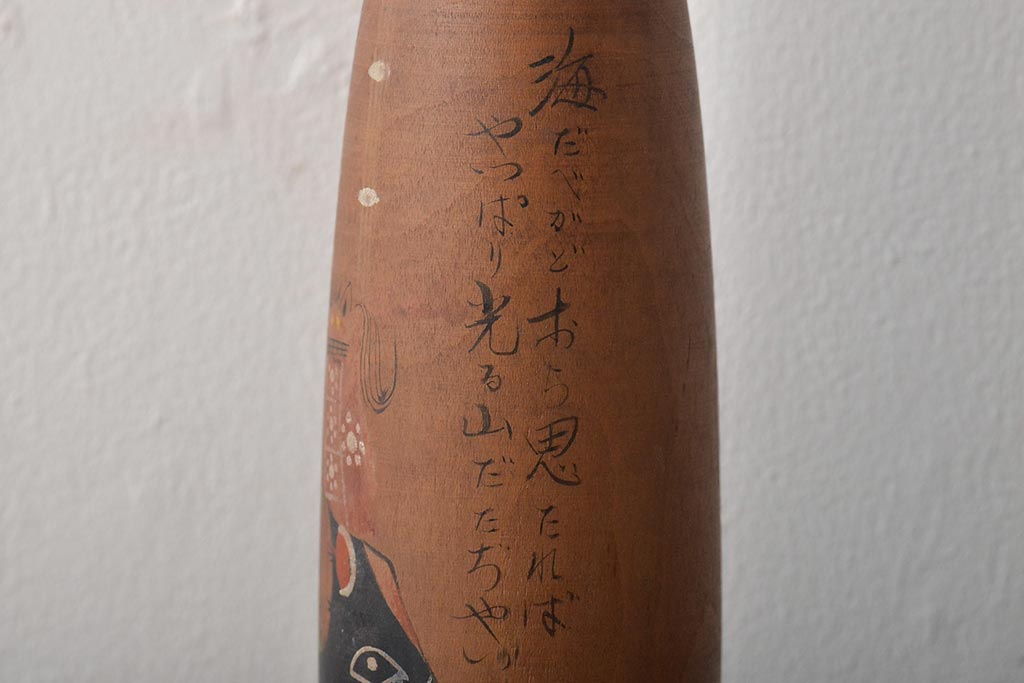 海だべがどおら思たれば
やつぱり光る山だたぢやい